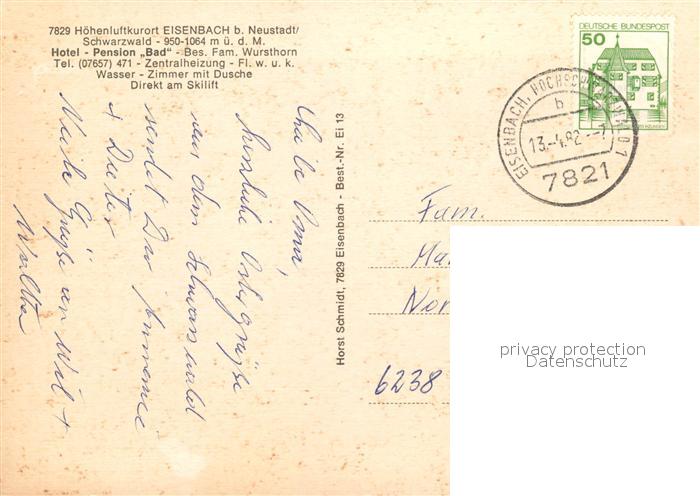 7829 Höhenluftkurort EISENBACH b. Neustadt/
Schwarzwald - 950-1064 m ü. d. M.
Hotel - Pension „Bad" - Bes. Fam. Wursthorn
Tel. (07657) 471 - Zentralheizung - Fl. w. u. k.
Wasser - Zimmer mit Dusche
Direkt am Skilift
Liebe Oma,
herzliche Ostergrüße
aus dem Schwarzwald
sendet Dir
+ Dieter
Viele Grüße an Will +
Walter
Horst Schmidt, 7829 Eisenbach - Best.-Nr. Ei 13
DEUTSCHE BUNDESPOST
50
EISENBACH, HOCHSCHWARZWALD 1
b
13.-4.82
7821
Fam.
Ma
Nor
6238
privacy protection
Datenschutz